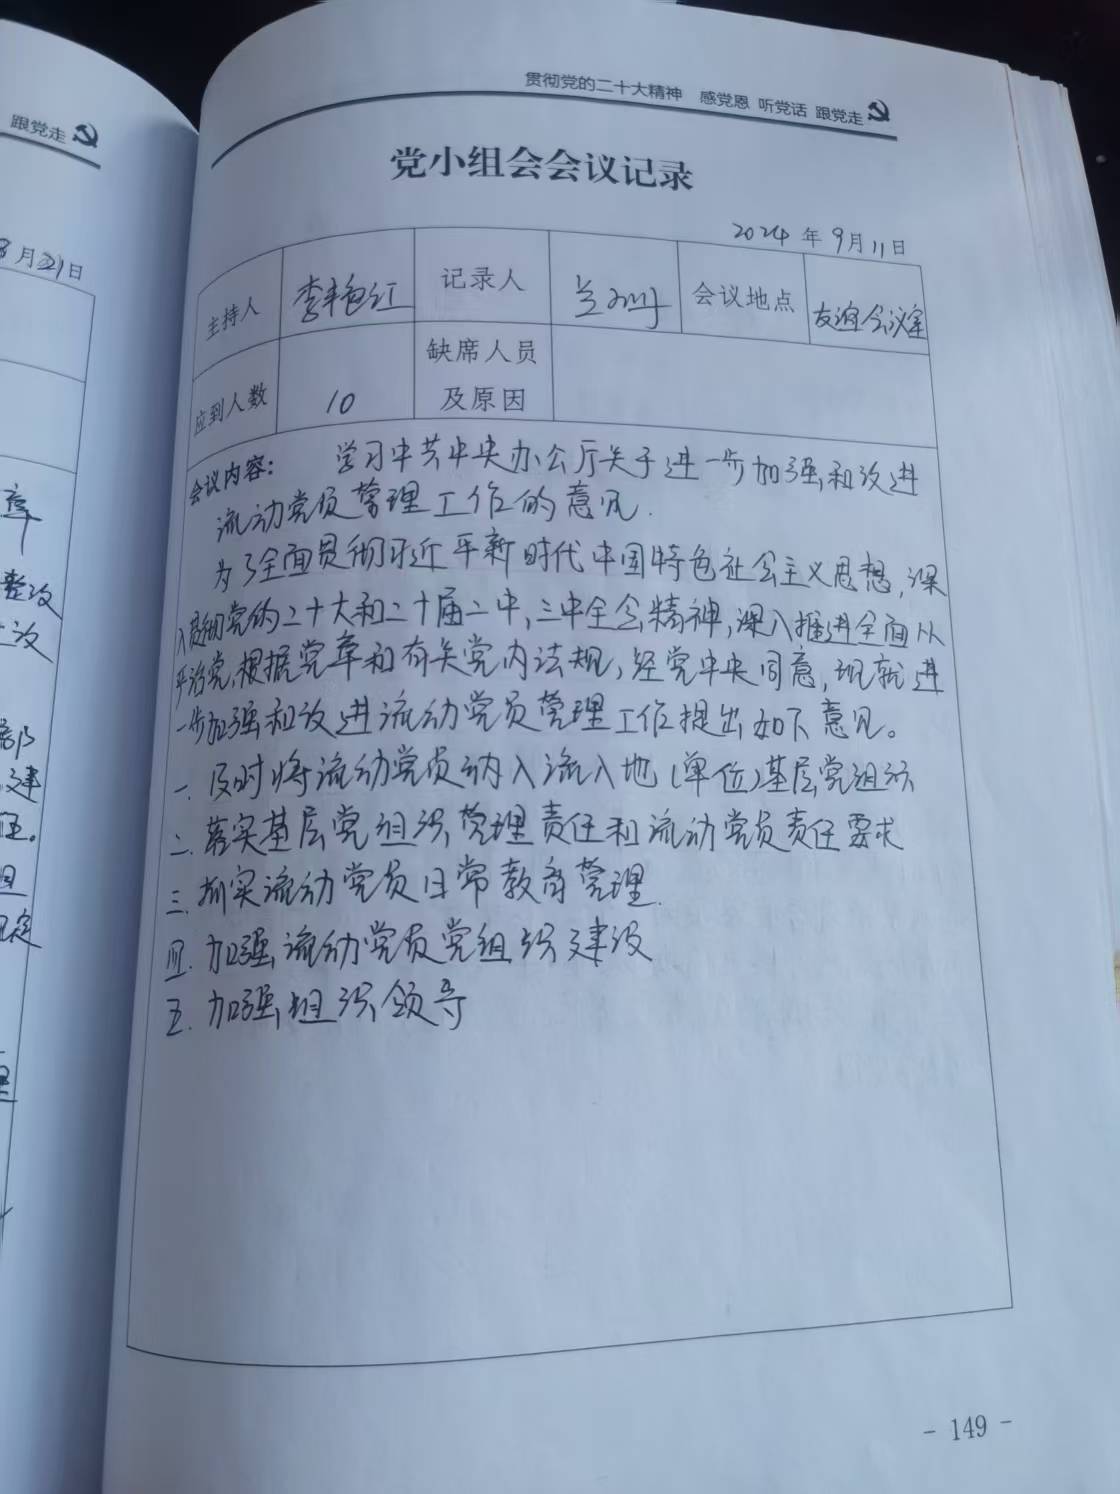 跟党走
8月21日
章
整改
改
部
建
旦
定
贯彻党的二十大精神 感党恩 听党话 跟党走
党小组会会议记录
2024年9月11日
主持人 李艳红 记录人 会议地点 友谊会议室
应到人数 10 缺席人员及原因
会议内容: 学习中共中央办公厅关于进一步加强和改进
流动党员管理工作的意见.
为了全面贯彻习近平新时代中国特色社会主义思想,深
入贯彻党的二十大和二十届二中,三中全会精神,深入推进全面从
严治党,根据党章和有关党内法规,经党中央同意,现就进
一步加强和改进流动党员管理工作提出如下意见。
一. 及时将流动党员纳入流入地(单位)基层党组织
二. 落实基层党组织管理责任和流动党员责任要求
三. 抓实流动党员日常教育管理.
四. 加强流动党员党组织建设
五. 加强组织领导
- 149 -